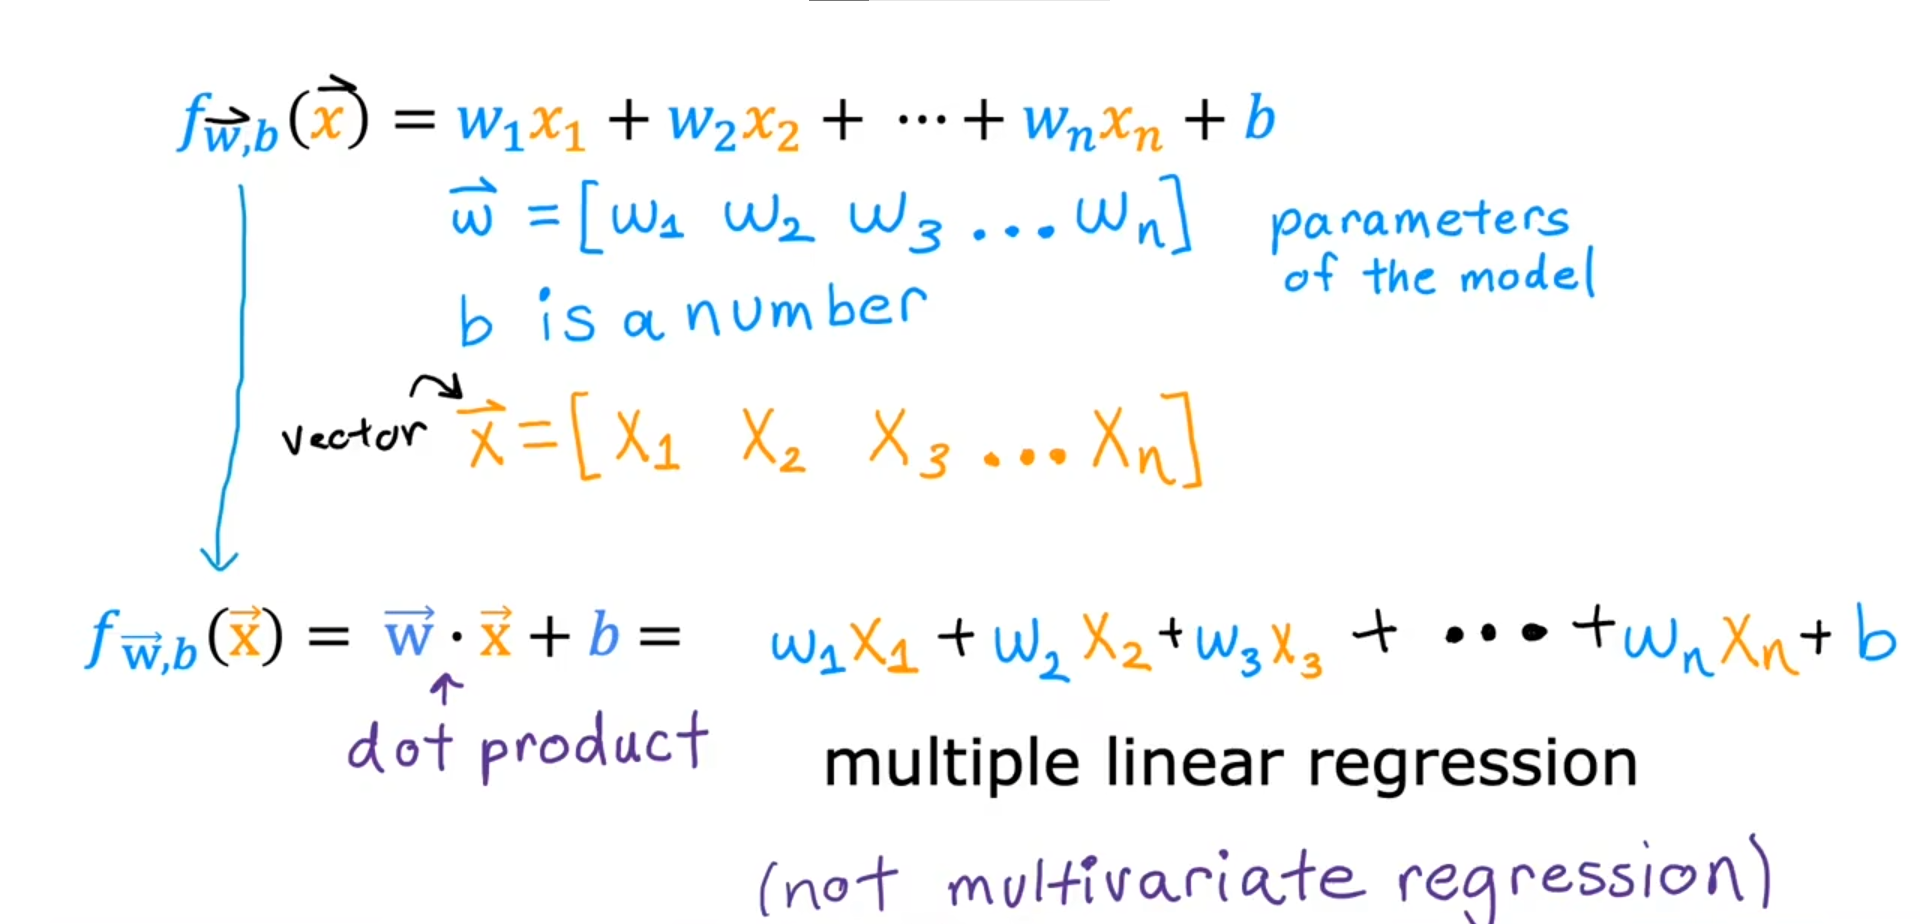 f_{\vec{w},b}(\vec{x}) = w₁x₁ + w₂x₂ + ⋯ + wₙxₙ + b
\vec{w} = [w₁ w₂ w₃ ... wₙ] parameters
of the model
b is a number
vector \vec{x} = [x₁ x₂ x₃ ... xₙ]
f_{\vec{w},b}(\vec{x}) = \vec{w} · \vec{x} + b = w₁x₁ + w₂x₂ + w₃x₃ + ... + wₙxₙ + b
dot product
multiple linear regression
(not multivariate regression)